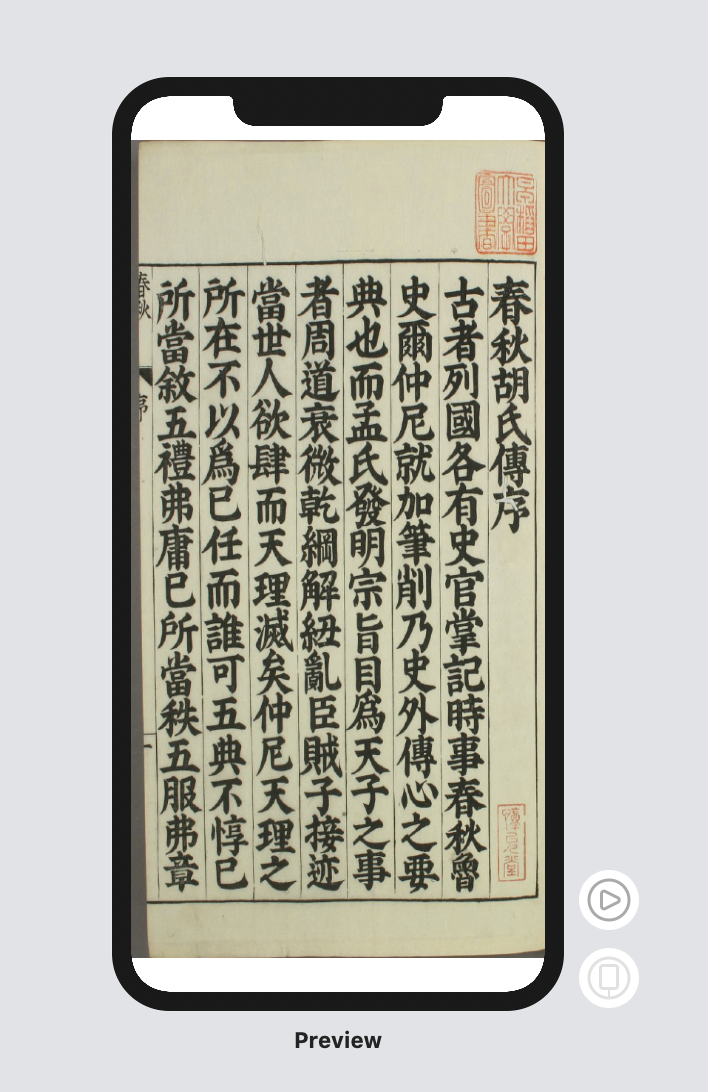 春秋胡氏傳序
古者列國各有史官掌記時事春秋魯
史爾仲尼就加筆削乃史外傳心之要
典也而孟氏發明宗旨目爲天子之事
者周道衰微乾綱解紐亂臣賊子接迹
當世人欲肆而天理滅矣仲尼天理之
所在不以爲已任而誰可五典不惇已
所當敘五禮弗庸已所當秩五服弗章
春秋
序
一
早稻田
大學
圖書
Preview